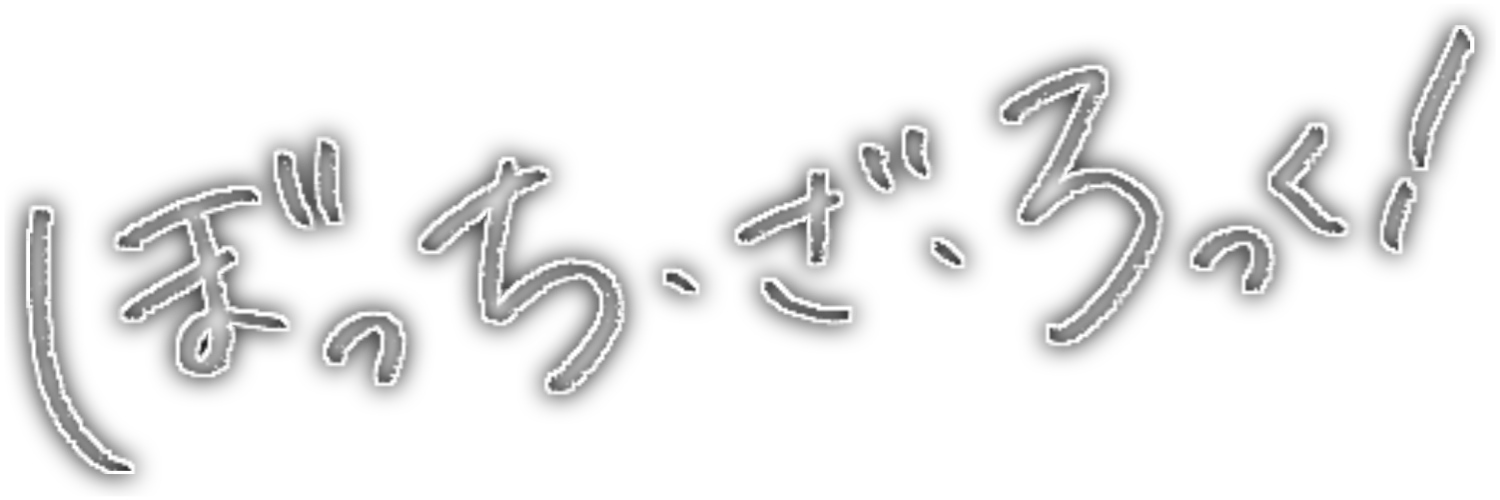 ぼっち、ざ、ろっく!